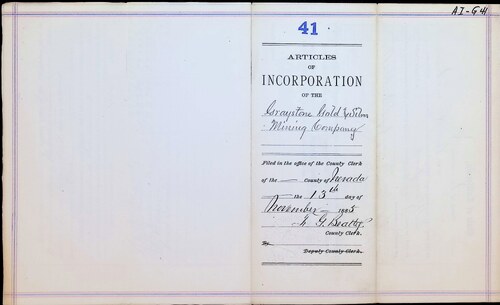 AI-G41
41
ARTICLES
OF
INCORPORATION
OF THE
Graystone Gold & Silver
Mining Company
Filed in the office of the County Clerk
of the — County of Nevada
— the 13th day of
November 1905
F. G. Beatty
County Clerk.
By
Deputy County Clerk.